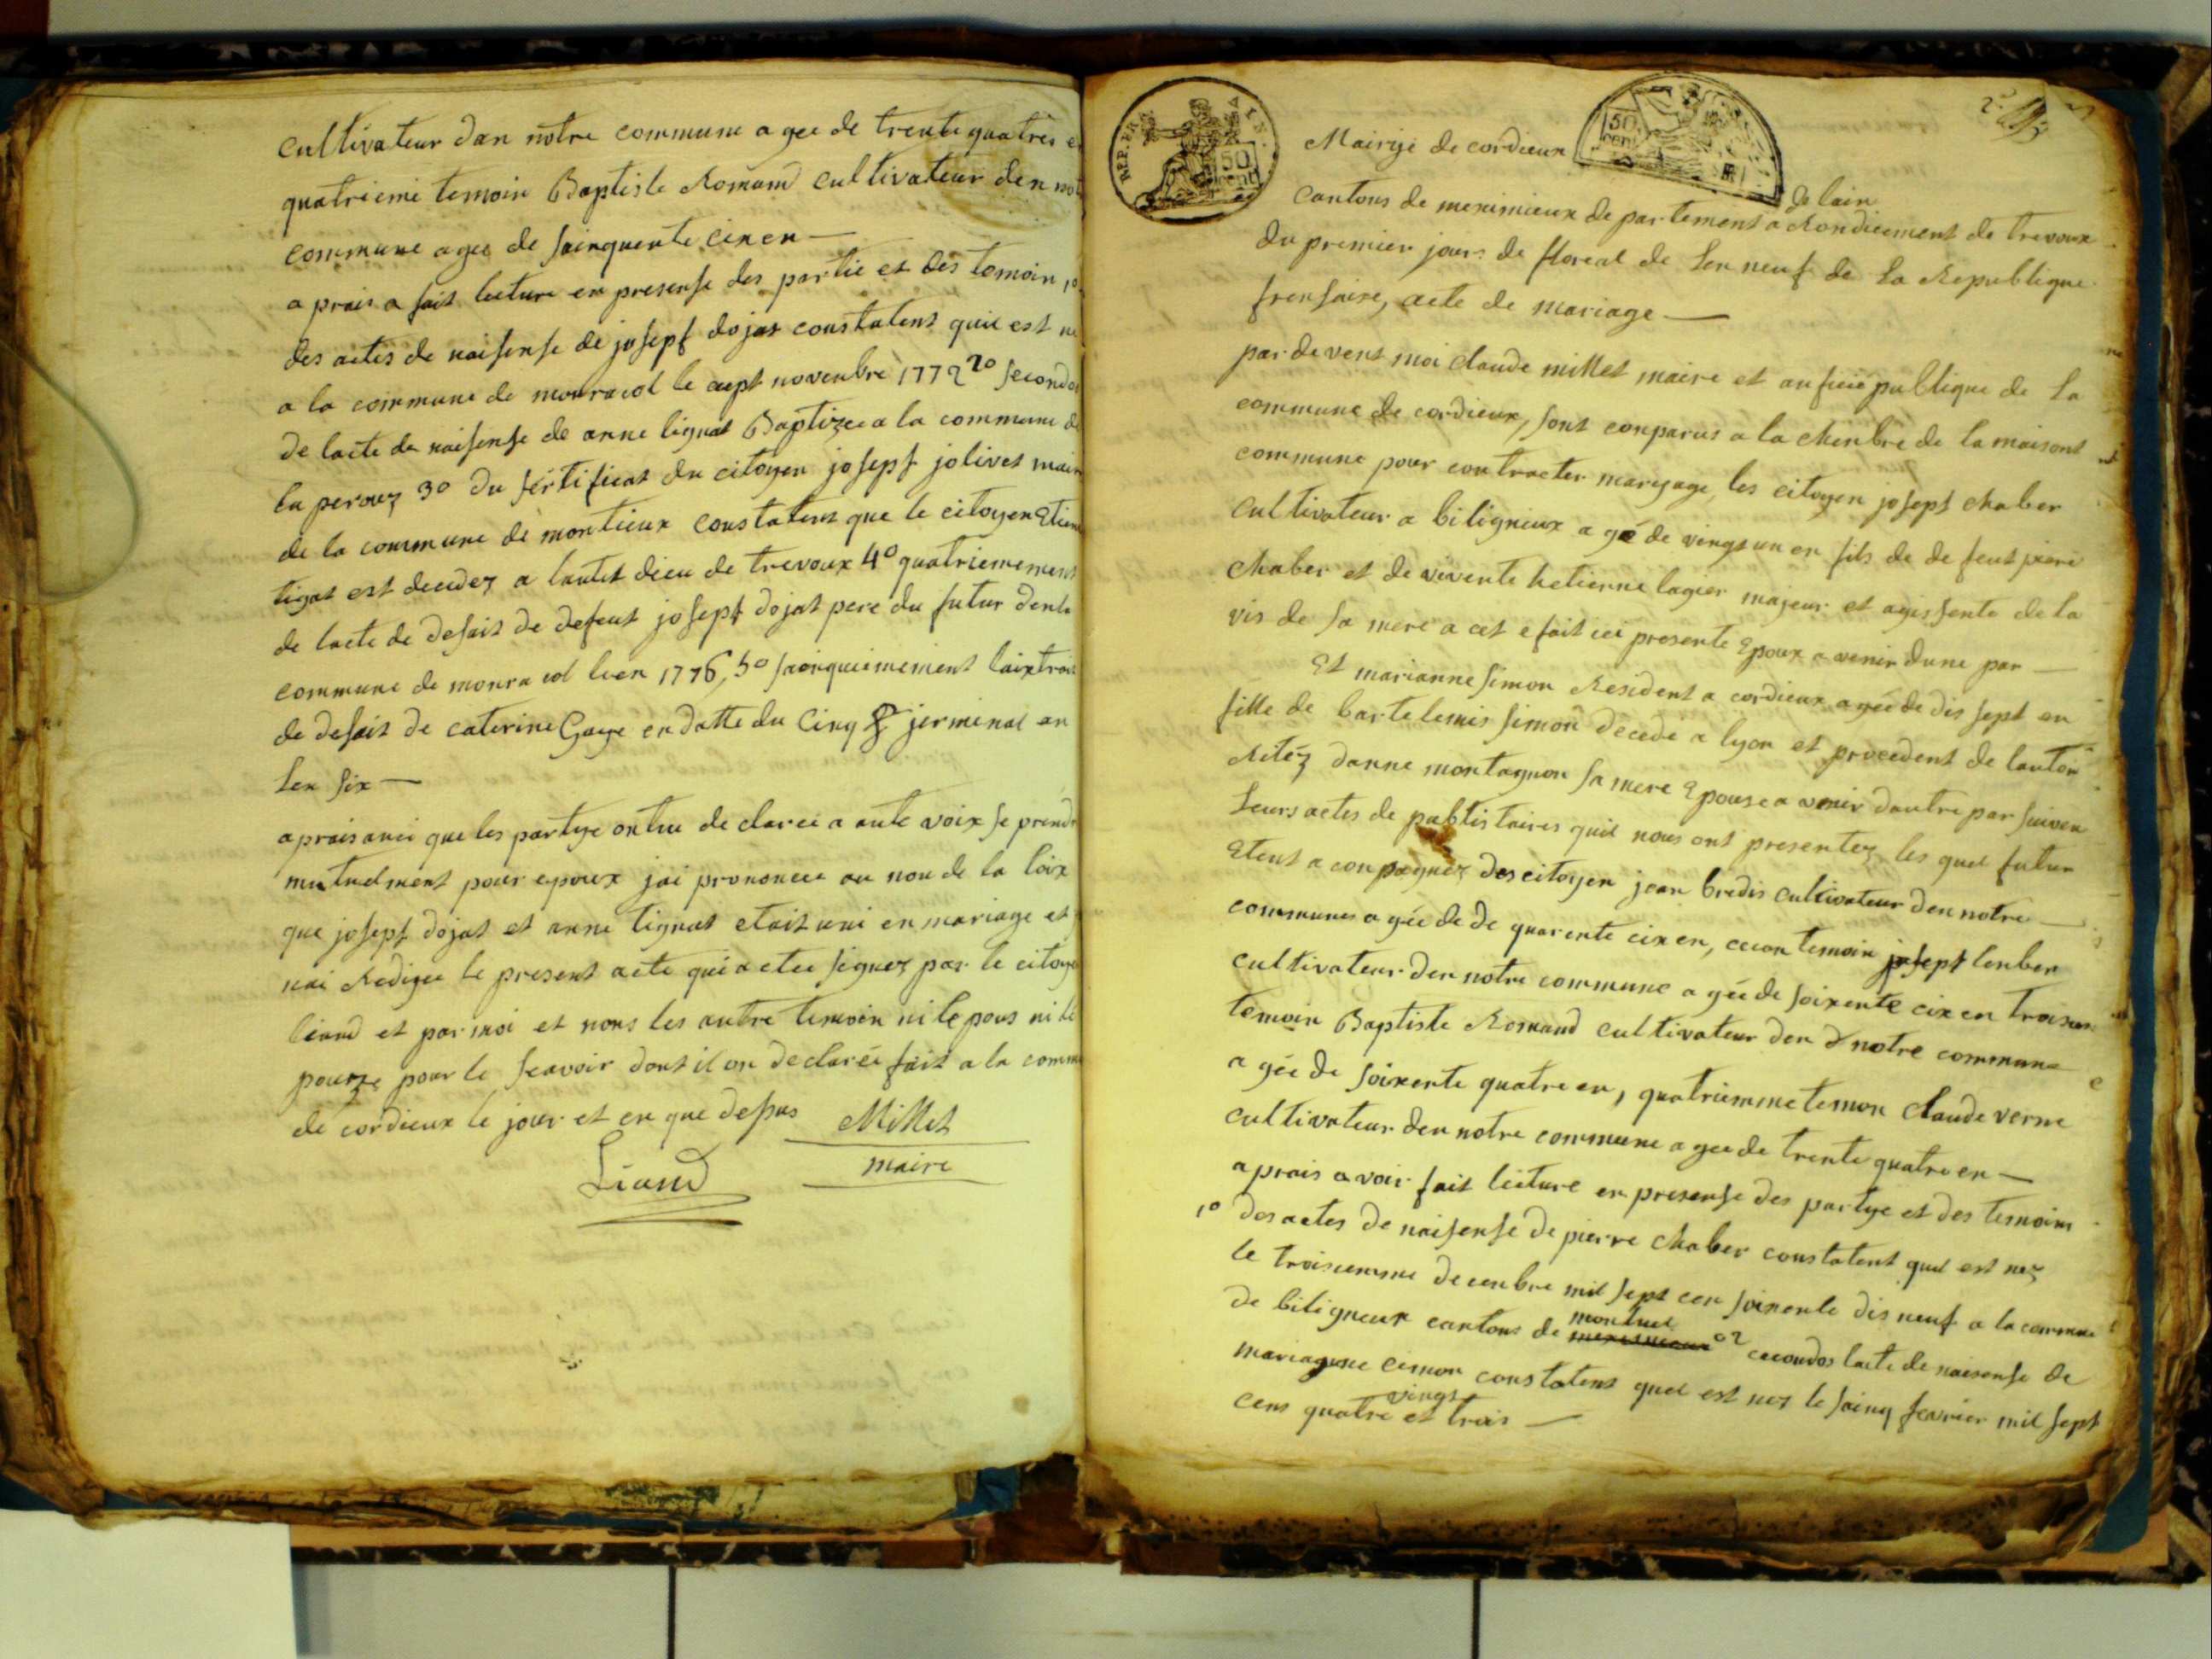 cultivateur dan nôtre commune a gee de trente quatres
quatrieme temoin Baptiste Romand cultivateur den
commune agee de sainquente cix en —
aprais a fait lecture en presense des partie et des temoin 1º
des actes de naisense de joseph dojat constatent quil est
a la commune de le cept novenbre 1772 2º secondos
de lacte de naisense de anne lignat Baptizee a la commune de
la perouz 3º du sértificat du citoyen joseph jolivet maire
de la commune de montieux constatent que le citoyen Etien
tignat est decedez a lautel dieu de trevoux 4º quatriemement
de lacte de desait de defeut joseph dojat pere du futur denla
commune de lien 1776, 5º sainquiemement laixtrai
de desait de caterine Gaye en datte du cinq jerminal an
len six —
aprais anci que les partye ontru declaree a aute voix se prendr
mutuelment pour epoux jai prononcee au non de la loix
que joseph dojat et anne tignat etait uni en mariage et
nai Redigee le present acte qui a etee signez par le citoye
liand et par moi et nons les autre temoin ni le pous ni le
pouze pour le scavoir dont il on declarée fait a la comm
de cordieux le jour et en que desus
Millet
maire
Liand
REP. FRA.
AIN.
50 cent
50 cent
Mairiye de cordieux
cantons de meximieux de partement de lain a Rondicement de trevoux
du premier jours de floreal de Len neuf de La Republique
frensaise, acte de mariage —
par devent moi claude millet maire et aufisié publique de La
commune de cordieux, sont conparus a la chenbre de la maisont
commune pour contracter maryage, les citoyen joseph chaber
cultivateur a biligneux a gé de vingt un en fils de de feut piere
chaber et de vivente hetienne lagier majeur et agissente de la
vis de sa mere a cet e fait ici presente Epoux a venir dune par —
Et marianne simon Resident a cordieux agée de dis sept en
fille de bartelemis simon décede a lyon et procedent de lauto
Ritéz danne montagnon sa mere Epouse a venir dautre par suiven
Leurs actes de publistaires quil nous ont presentez les quel futur
Etent a conpagnez des citoyen jean bredis cultivateur den notre —
communes agée de de quarente cix en, cecon temoin joseph lenber
cultivateur den notre commune a gée de soixente cix en troisiem
temoin Baptiste Romand cultivateur den d notre commune
a gée de soixente quatre en, quatriemme temon claude verne
cultivateur den notre commune a gee de trente quatre en —
aprais avoir fait lecture en presense des partye et des temoins
1º des actes de naisense de pierre chaber constatent quil est nez
le troisiemme decenbre mil sept cen soixente dis neuf a la commune
de biligneux cantons de montuel 2º cecondos lacte de naisense de
mariagne cimon constatent quel est nez le sainq fevrier mil sept
cens quatre vings et trois —